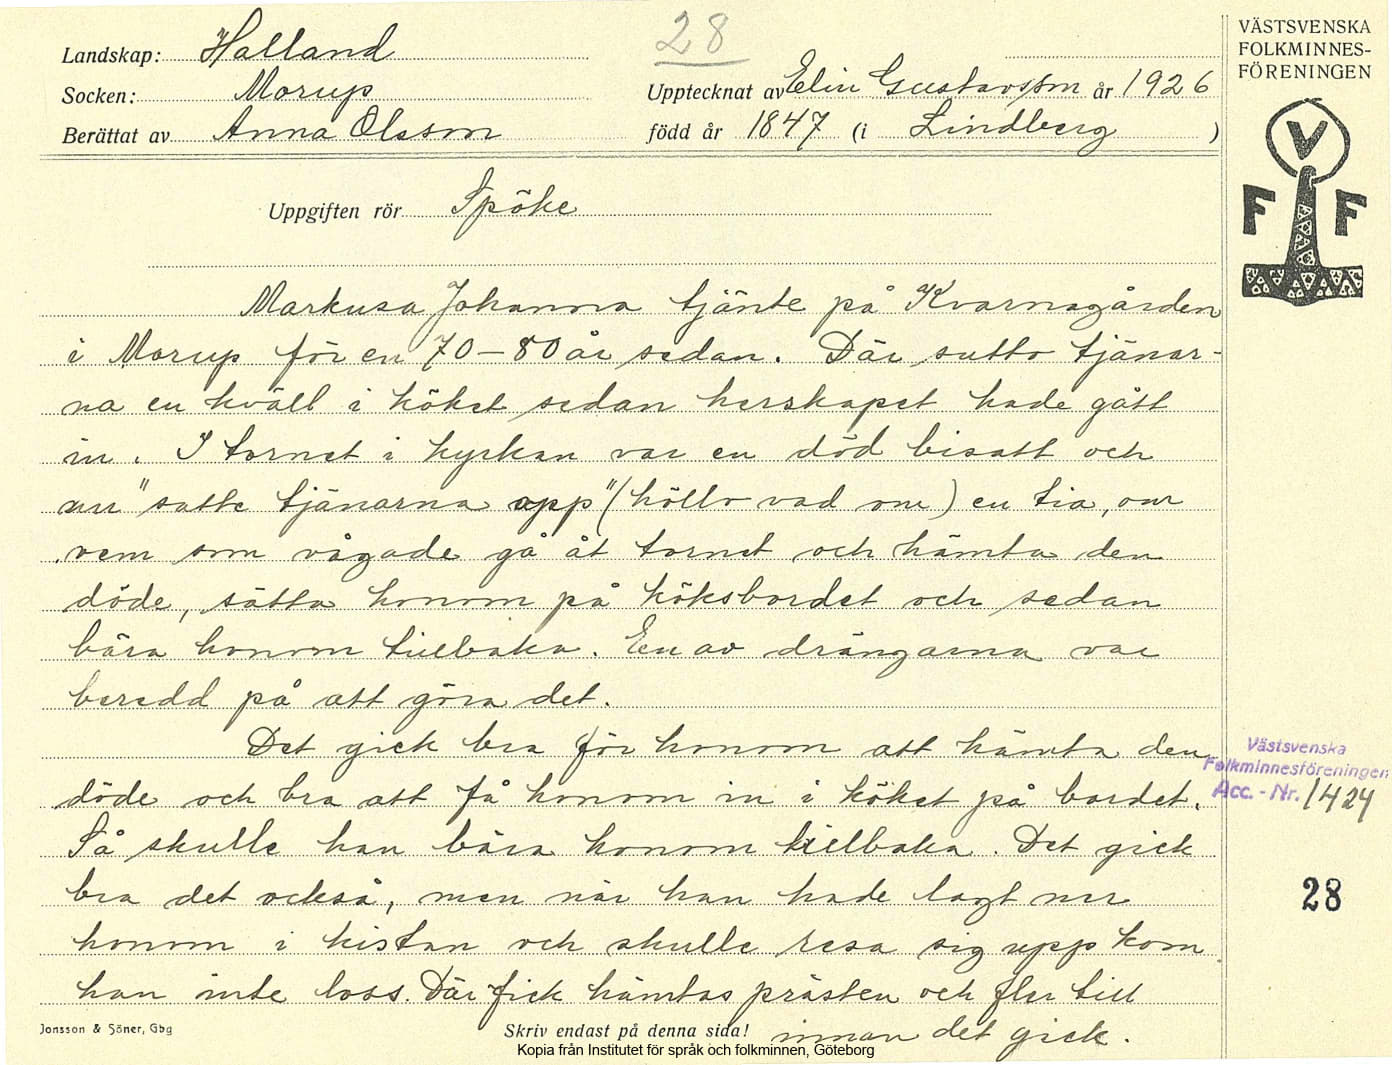 28
VÄSTSVENSKA
FOLKMINNES-
FÖRENINGEN
Landskap: Halland
Socken: Morup
Upptecknat av Elin Gustavsson år 1926
Berättat av Anna Olsson
född år 1847 (i Lindberg)
V
F F
Uppgiften rör Spöke
Markusa Johanna tjänte på Kvarnagården
i Morup för en 70-80 år sedan. Där sutto tjänar-
na en kväll i köket sedan herskapet hade gått
in. I tornet i kyrkan var en död bisatt och
nu "satte tjänarna opp" (höllo vad om) en tia, om
vem som vågade gå åt tornet och hämta den
döde, sätta honom på köksbordet och sedan
bära honom tillbaka. En av drängarna var
beredd på att göra det.
Det gick bra för honom att hämta den
döde och bra att få honom in i köket på bordet.
Så skulle han bära honom tillbaka. Det gick
bra det också, men när han hade lagt ner
honom i kistan och skulle resa sig upp kom
han inte loss. Där fick hämtas prästen och fler till
innan det gick.
Västsvenska
Folkminnesföreningen
Acc.-Nr. 1424
28
Jonsson & Söner, Gbg
Skriv endast på denna sida!
Kopia från Institutet för språk och folkminnen, Göteborg